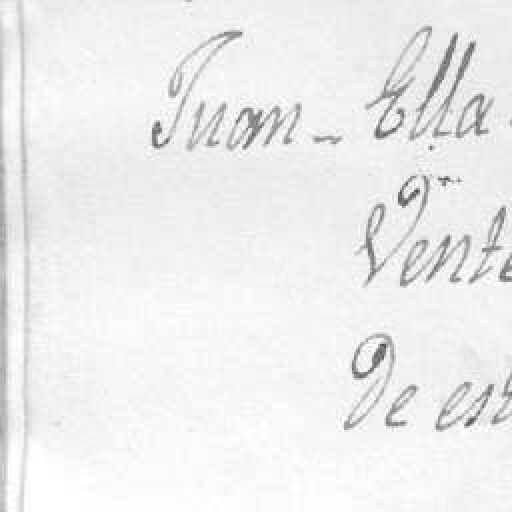 Juan - Ella
Vente
De est